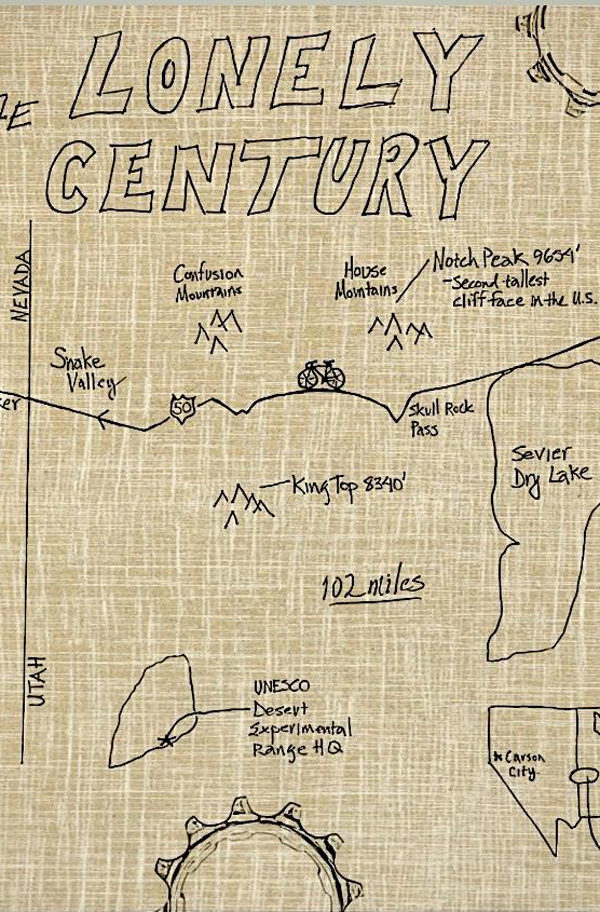 LONELY
CENTURY
NEVADA
Confusion
Mountains
House
Mountains
Notch Peak 9654'
-Second tallest
cliff face in the U.S.
Snake
Valley
50
Skull Rock
Pass
Sevier
Dry Lake
King Top 8340'
102 miles
UTAH
UNESCO
Desert
Experimental
Range HQ
Carson
City